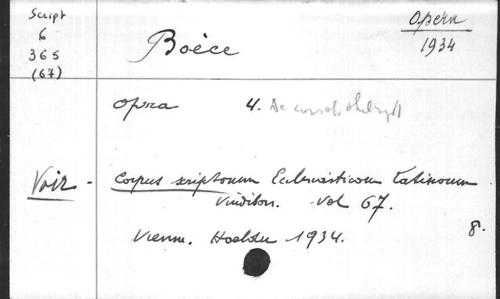 Script
6
365
(67)
Opera
1934
Boèce
Opera 4. De
Voir - Corpus scriptorum Ecclesiasticorum Latinorum
Vindobon. Vol 67.
Vienn. Hoelder 1934. 8.